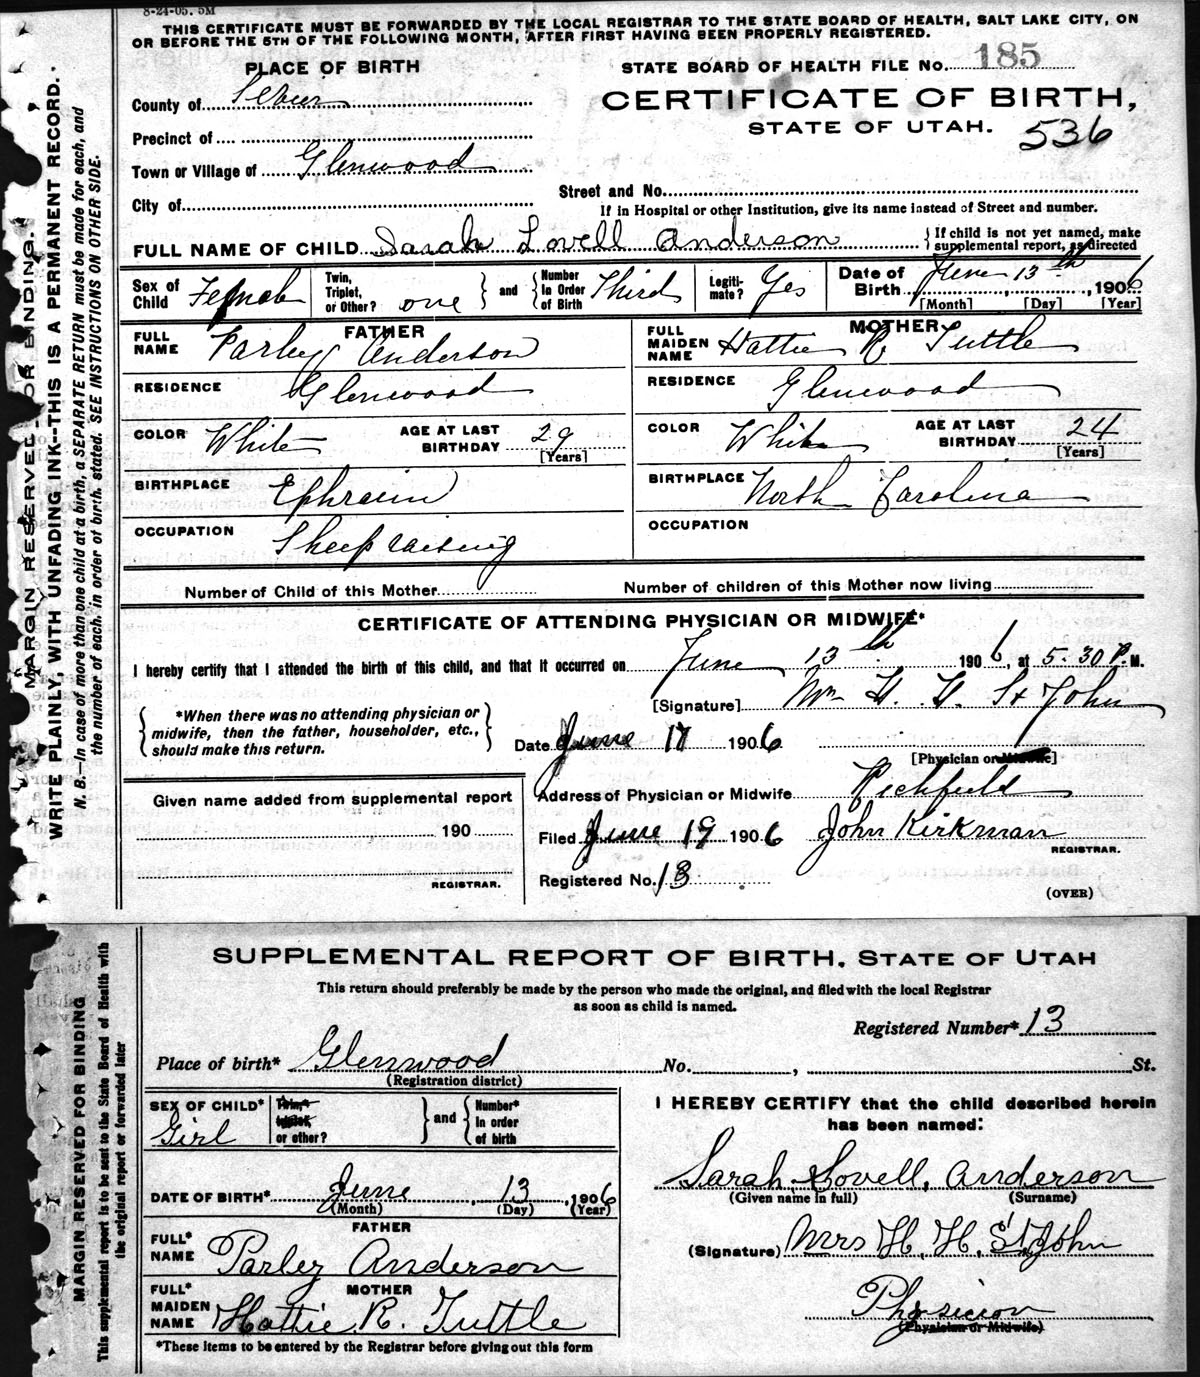 8-24-05. 5M
THIS CERTIFICATE MUST BE FORWARDED BY THE LOCAL REGISTRAR TO THE STATE BOARD OF HEALTH, SALT LAKE CITY, ON
OR BEFORE THE 5TH OF THE FOLLOWING MONTH, AFTER FIRST HAVING BEEN PROPERLY REGISTERED.
PLACE OF BIRTH
STATE BOARD OF HEALTH FILE NO. 185
County of Sevier
CERTIFICATE OF BIRTH,
STATE OF UTAH. 536
Precinct of
Town or Village of Glenwood
Street and No.
City of
If in Hospital or other Institution, give its name instead of Street and number.
FULL NAME OF CHILD Sarah Lovell Anderson
If child is not yet named, make
supplemental report, as directed
Sex of Child Female
Twin, Triplet, or Other? one and Number In Order of Birth Third
Legiti-mate? Yes
Date of Birth June 13th, 1906
[Month] [Day] [Year]
FATHER
FULL NAME Parley Anderson
RESIDENCE Glenwood
COLOR White AGE AT LAST BIRTHDAY 29
[Years]
BIRTHPLACE Ephraim
OCCUPATION Sheep raising
MOTHER
FULL MAIDEN NAME Hattie R. Tuttle
RESIDENCE Glenwood
COLOR White AGE AT LAST BIRTHDAY 24
[Years]
BIRTHPLACE North Carolina
OCCUPATION
Number of Child of this Mother
Number of children of this Mother now living
CERTIFICATE OF ATTENDING PHYSICIAN OR MIDWIFE*
I hereby certify that I attended the birth of this child, and that it occurred on June 13th 1906, at 5.30 P.M.
[Signature] H. H. St John
*When there was no attending physician or
midwife, then the father, householder, etc.,
should make this return.
Date June 1906
[Physician or Midwife]
Given name added from supplemental report
190
REGISTRAR.
Address of Physician or Midwife Richfield
Filed June 19 1906 John Kirkman
REGISTRAR.
Registered No. 13
(OVER)
MARGIN RESERVED FOR BINDING.
WRITE PLAINLY, WITH UNFADING INK--THIS IS A PERMANENT RECORD.
N. B.—In case of more than one child at a birth, a SEPARATE RETURN must be made for each, and
the number of each, in order of birth, stated. SEE INSTRUCTIONS ON OTHER SIDE.
SUPPLEMENTAL REPORT OF BIRTH, STATE OF UTAH
This return should preferably be made by the person who made the original, and filed with the local Registrar
as soon as child is named.
Registered Number* 13
Place of birth* Glenwood No. , St.
(Registration district)
SEX OF CHILD* Girl
Twin,* triplet, or other? and Number* In order of birth
DATE OF BIRTH* June, 13, 1906
(Month) (Day) (Year)
FATHER
FULL* NAME Parley Anderson
MOTHER
FULL* MAIDEN NAME Hattie R. Tuttle
*These items to be entered by the Registrar before giving out this form
I HEREBY CERTIFY that the child described herein
has been named:
Sarah Lovell, Anderson
(Given name in full) (Surname)
(Signature) Mrs H. H. St John
Physician
(Physician or Midwife)
MARGIN RESERVED FOR BINDING
This supplemental report is to be sent to the State Board of Health with
the original report or forwarded later